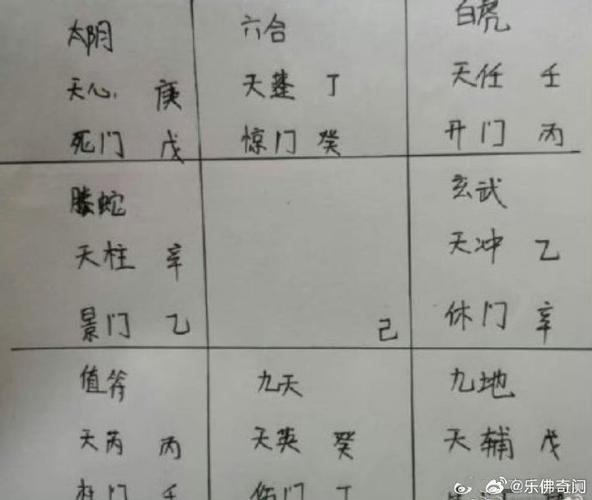 太阴
天心 庚
死门 戊
六合
天蓬 丁
惊门 癸
白虎
天任 壬
开门 丙
螣蛇
天柱 辛
景门 乙
己
玄武
天冲 乙
休门 辛
值符
天芮 丙
杜门 壬
九天
天英 癸
伤门 丁
九地
天辅 戊
@乐佛奇闵